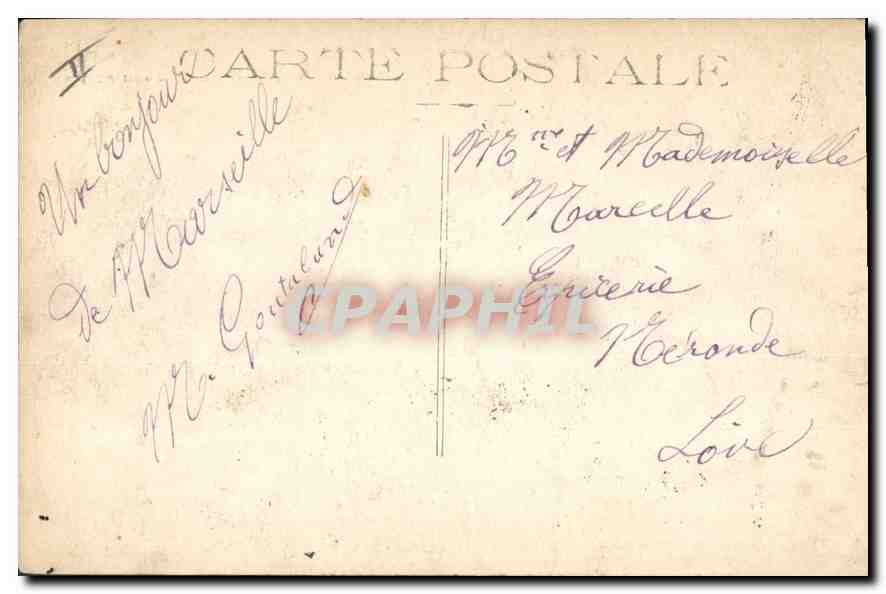 II
CARTE POSTALE
Un bonjour
de Marseille
M. Goutaland
Mme et Mademoiselle
Marcelle
Epicerie
Néronde
Loire
CPAPHIL